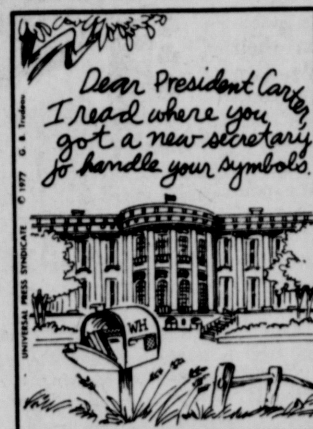 Dear President Carter,
I read where you
got a new secretary
to handle your symbols.
WH
UNIVERSAL PRESS SYNDICATE © 1977 G. B. Trudeau